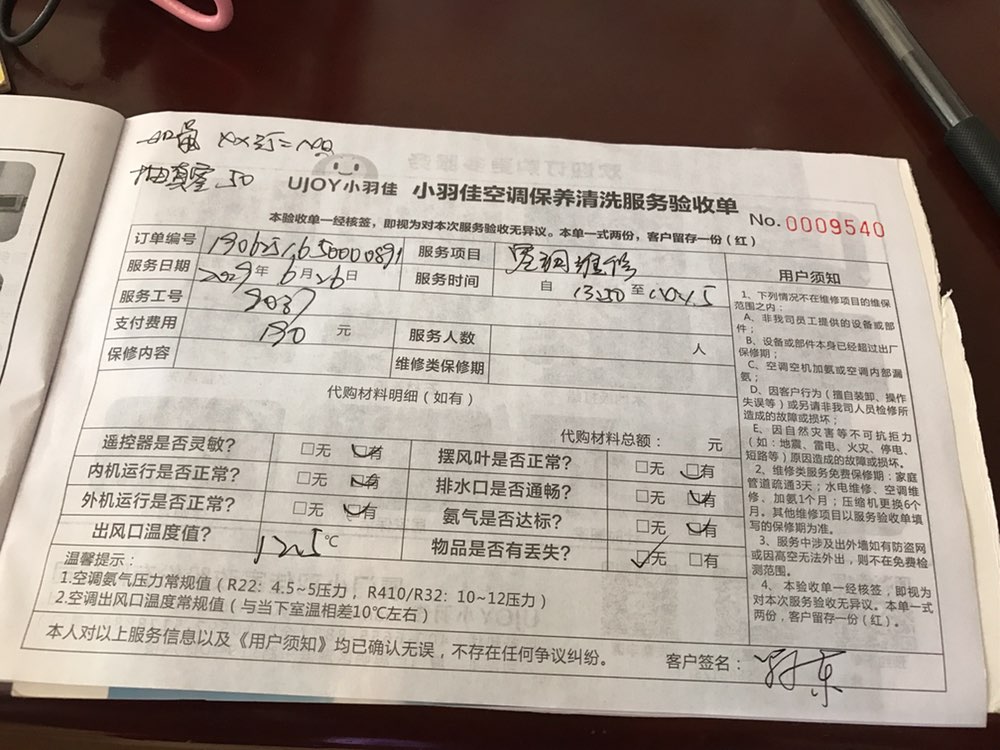 抽真空 50
UJOY小羽佳 小羽佳空调保养清洗服务验收单
No.0009540
本验收单一经核签，即视为对本次服务验收无异议。本单一式两份，客户留存一份（红）
订单编号 服务项目 空调维修
服务日期 年6月26日 服务时间 自 至
服务工号
支付费用 190 元 服务人数 人
保修内容 维修类保修期
代购材料明细（如有）
代购材料总额： 元
遥控器是否灵敏？ □无 □有 摆风叶是否正常？ □无 □有
内机运行是否正常？ □无 □有 排水口是否通畅？ □无 □有
外机运行是否正常？ □无 □有 氨气是否达标？ □无 □有
出风口温度值？ 12.5℃ 物品是否有丢失？ □无 □有
温馨提示：
1.空调氨气压力常规值（R22：4.5~5压力，R410/R32：10~12压力）
2.空调出风口温度常规值（与当下室温相差10℃左右）
本人对以上服务信息以及《用户须知》均已确认无误，不存在任何争议纠纷。
客户签名：
用户须知
1、下列情况不在维修项目的维保
范围之内：
A、非我司员工提供的设备或部
件；
B、设备或部件本身已经超过出厂
保修期；
C、空调空机加氨或空调内部漏
氨；
D、因客户行为（擅自装卸、操作
失误等）或另请非我司人员检修所
造成的故障或损坏；
E、因自然灾害等不可抗拒力
（如：地震、雷电、火灾、停电、
短路等）原因造成的故障或损坏。
2、维修类服务免费保修期：家庭
管道疏通3天；水电维修、空调维
修、加氨1个月；压缩机更换6个
月。其他维修项目以服务验收单填
写的保修期为准。
3、服务中涉及出外墙如有防盗网
或因高空无法外出，则不在免费检
测范围。
4、本验收单一经核签，即视为
对本次服务验收无异议。本单一式
两份，客户留存一份（红）。